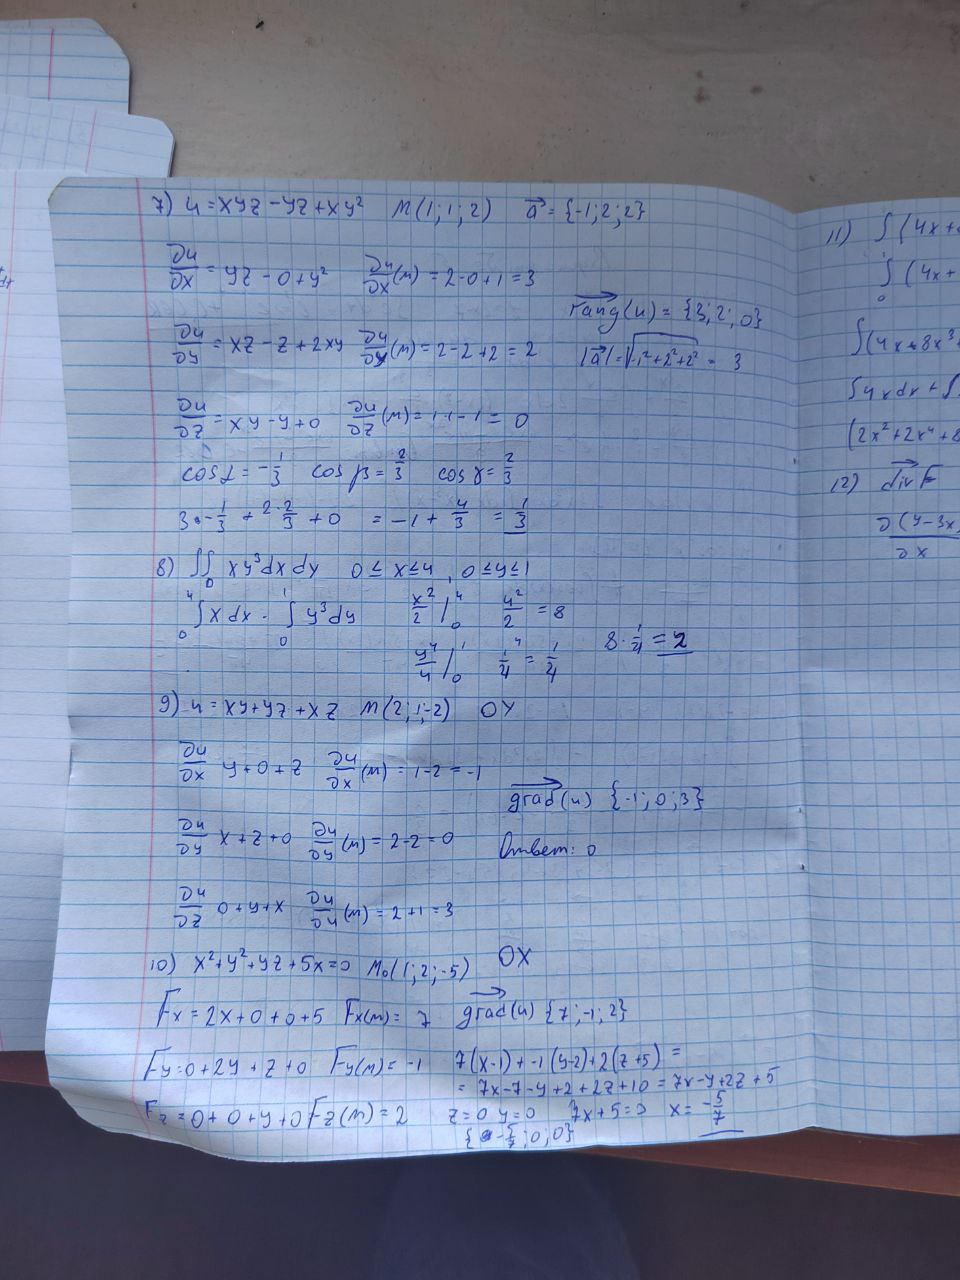 7) u = xyz - yz + xy² M(1; 1; 2) a⃗ = {-1; 2; 2}
∂u/∂x = yz - 0 + y² ∂u/∂x(M) = 2 - 0 + 1 = 3
rang(u) = {3; 2; 0}
∂u/∂y = xz - z + 2xy ∂u/∂y(M) = 2 - 2 + 2 = 2
|a⃗| = √(-1² + 2² + 2²) = 3
∂u/∂z = xy - y + 0 ∂u/∂z(M) = 1·1 - 1 = 0
cos α = -1/3 cos β = 2/3 cos γ = 2/3
3 · -1/3 + 2·2/3 + 0 = -1 + 4/3 = 1/3
8) ∬_D xy³dxdy 0 ≤ x ≤ 4, 0 ≤ y ≤ 1
∫₀⁴ x dx · ∫₀¹ y³dy x²/2 |₀⁴ 4²/2 = 8
y⁴/4 |₀¹ 1⁴/4 = 1/4 8 · 1/4 = 2
9) u = xy + yz + xz M(2; 1; -2) OY
∂u/∂x y + 0 + z ∂u/∂x(M) = 1 - 2 = -1
grad(u) {-1; 0; 3}
∂u/∂y x + z + 0 ∂u/∂y(M) = 2 - 2 = 0
Ответ: 0
∂u/∂z 0 + y + x ∂u/∂u(M) = 2 + 1 = 3
10) x² + y² + yz + 5x = 0 M₀(1; 2; -5) OX
Fx = 2x + 0 + 0 + 5 Fx(M) = 7 grad(u) {7; -1; 2}
Fy = 0 + 2y + z + 0 Fy(M) = -1 7(x-1) + -1(y-2) + 2(z+5) =
= 7x - 7 - y + 2 + 2z + 10 = 7x - y + 2z + 5
Fz = 0 + 0 + y + 0 Fz(M) = 2 z = 0 y = 0 7x + 5 = 0 x = -5/7
{-5/7; 0; 0}
11) ∫(4x+
∫₀¹(4x+
∫(4x+8x³+
∫4xdx + ∫
(2x²+2x⁴+8
12) div F⃗
∂(y-3x)/∂x